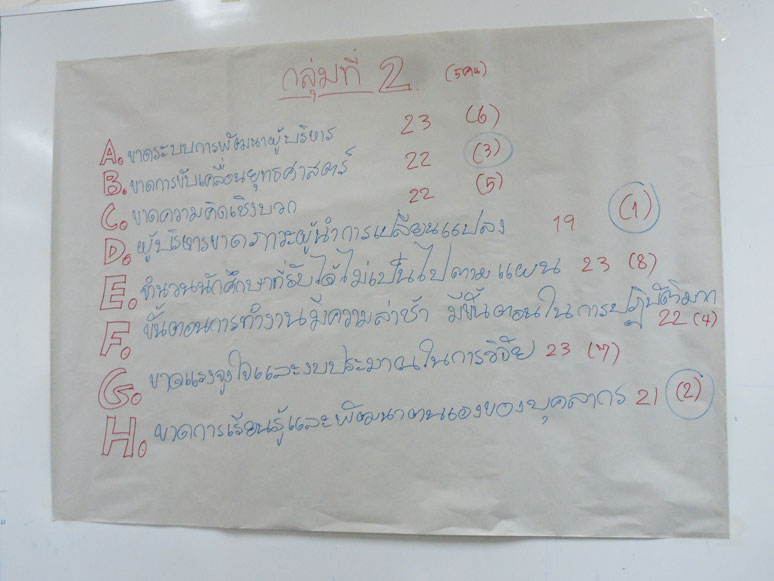 กลุ่มที่ 2 (5คน)
A. ขาดระบบการพัฒนาผู้บริหาร 23 (6)
B. ขาดการขับเคลื่อนยุทธศาสตร์ 22 (3)
C. ขาดความคิดเชิงบวก 22 (5)
D. ผู้บริหารขาดภาวะผู้นำการเปลี่ยนแปลง 19 (1)
E. จำนวนนักศึกษาที่รับได้ไม่เป็นไปตามแผน 23 (8)
F. ขั้นตอนการทำงานมีความล่าช้า มีขั้นตอนในการปฏิบัติมาก
22 (4)
G. ขาดแรงจูงใจและงบประมาณในการวิจัย 23 (7)
H. ขาดการเรียนรู้และพัฒนาตนเองของบุคลากร 21 (2)